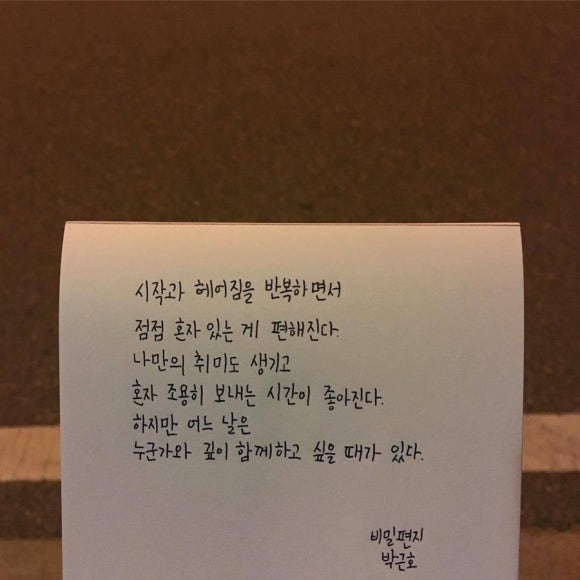 시작과 헤어짐을 반복하면서
점점 혼자 있는 게 편해진다.
나만의 취미도 생기고
혼자 조용히 보내는 시간이 좋아진다.
하지만 어느 날은
누군가와 깊이 함께하고 싶을 때가 있다.
비밀편지
박근호